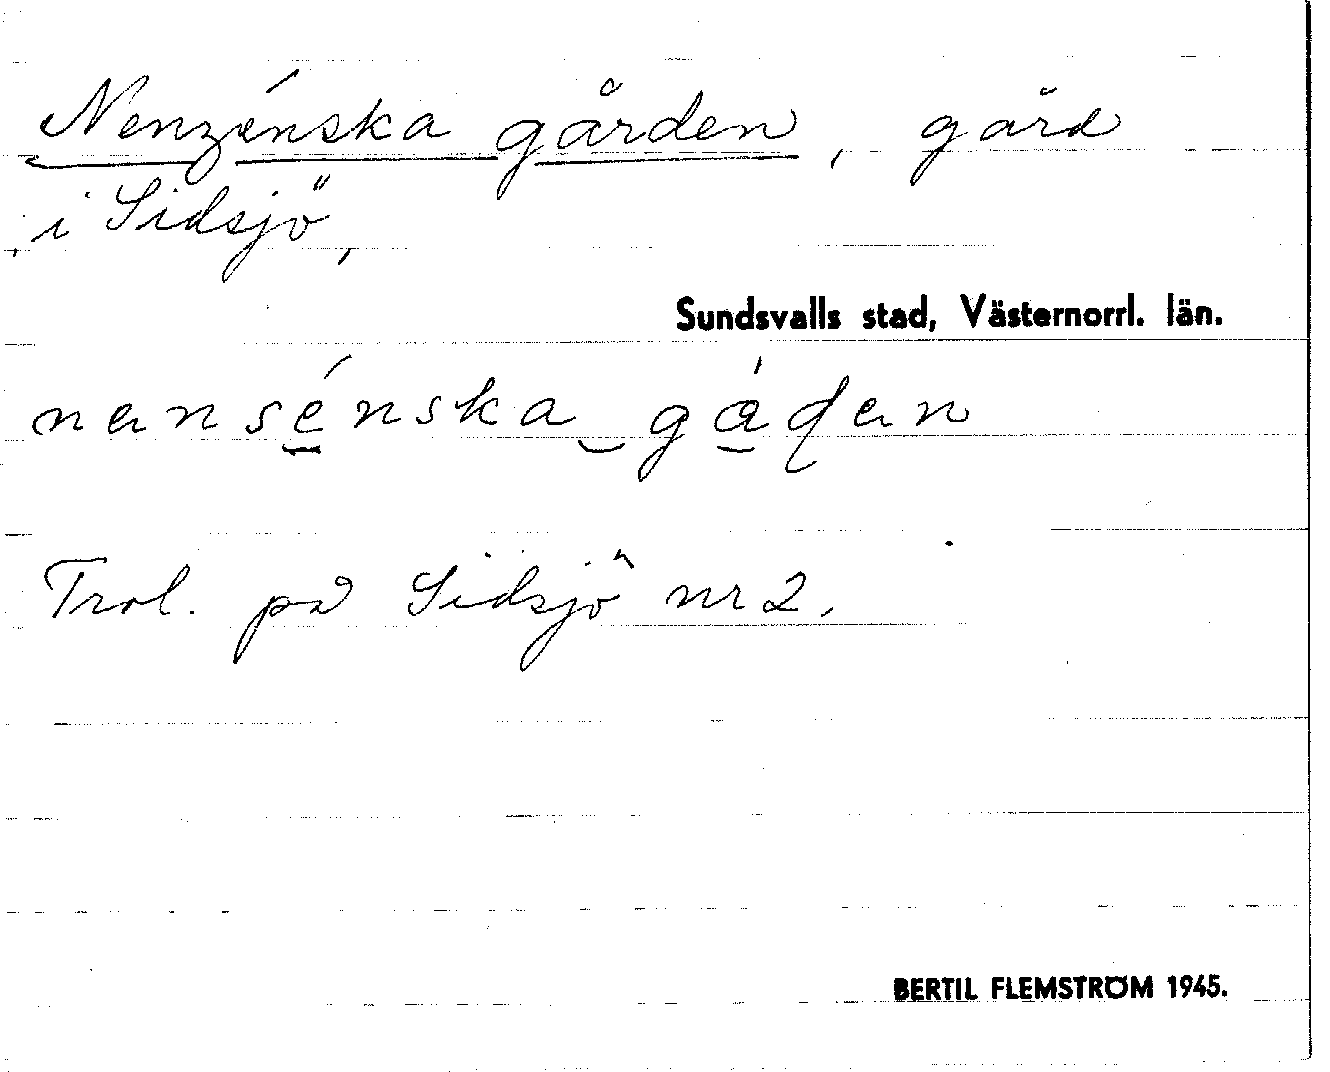 Nenzénska gården, gård
i Sidsjö,
Sundsvalls stad, Västernorrl. län.
nensénska gåden
Trol. på Sidsjö nr 2.
BERTIL FLEMSTRÖM 1945.